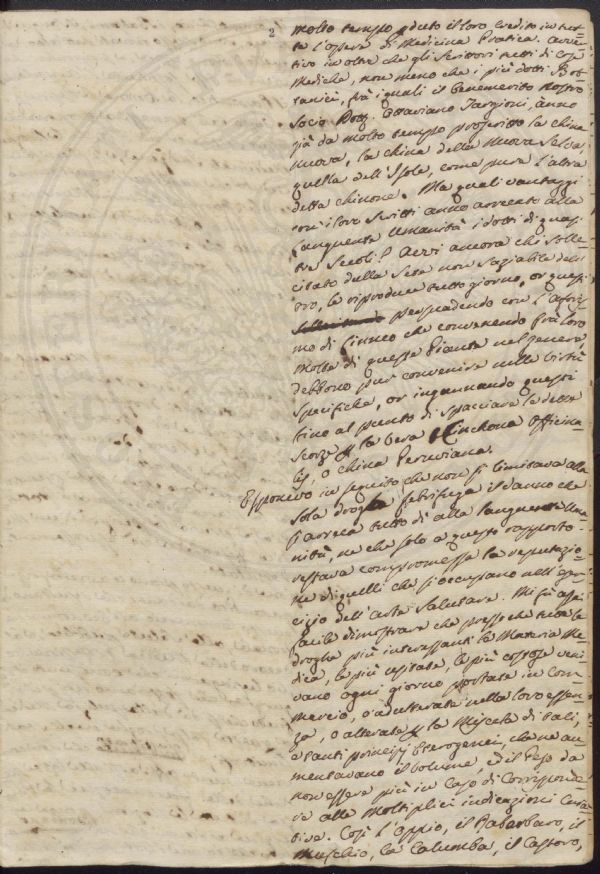 2
molto tempo pduto il loro Credito in tut=
ta l'opera di Medicina Pratica. Avver=
tivo inoltre che gli Scrittori tutti di Cose
Mediche, non meno che i più dotti Bo=
tanici, frà i quali il benemerito Nostro
Socio Dott. Ottaviano Targioni, anno
già da molto tempo proscritto la china
nuova, la china della nuova Selva,
quella dell'Isole, come pure l'altra
detta chinone. Ma quali vantaggi
con i loro Scritti anno arrecato alla
languente Umanità i dotti di quasi
tre Secoli? Avvi ancora chi solle=
citato dalla Sete non saziabile dell'
oro, le riproduce tutto giorno, or questi
persuadendo con l'aforis=
mo di Linneo che convenendo frà loro
molte di queste Piante nel genere,
debbono pur convenire nelle virtù
specifiche, or ingannando questi
fino al punto di spacciare le dette
Scorze p la vera Cinchona Officina=
lis, o china Peruviana.
Esponevo in seguito che non si limitava alla
sola droga febrifuga il danno che
s'arreca tutto dì alla languente Uma=
nità, ne che solo a questo rapporto
restava compromessa la reputazio=
ne di quelli che si occupano nell'eser=
cizio dell'arte Salutare. Mi fù assai
facile dimostrare che presso che tutte le
droghe più interessanti la Materia Me=
dica, le più usitate, le più costose veni=
vano ogni giorno portate in Com=
mercio, o adulterate nella loro essen=
za, o alterate p la Miscela di Sali,
e tanti principj Eterogenei, che ne au=
mentavano il volume, ed il Peso da
non essere più in Caso di Corrisponde=
re alle moltiplici indicazioni Cura=
tive. Così l'Oppio, il Rabarbaro, il
Muschio, la Calumba, il Castoro,